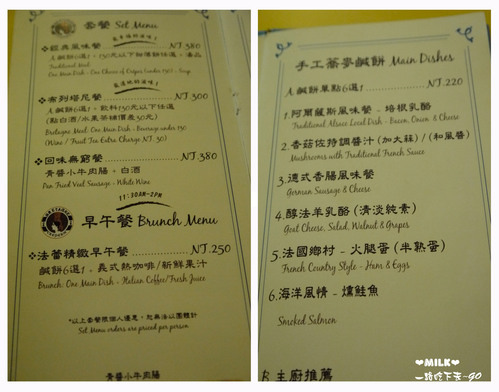 套餐 Set Menu
經典風味餐 ... NT.380
Traditional Meal
布列塔尼餐 ... NT.300
A 鹹餅6選1, 飲料130元以下任選
(點白酒/水果茶補價差30元)
Bretagne Meal: One Main Dish - Beverage under 130
(Wine / Fruit Tea Extra Charge NT.30)
回味無窮餐 ... NT.380
青醬小牛肉腸, 白酒
Pan Fried Veal Sausage - White Wine
11:30AM-2PM
早午餐 Brunch Menu
法蕾精緻早午餐 ... NT.250
鹹餅6選1 - 義式熱咖啡/新鮮果汁
Brunch: One Main Dish - Italian Coffee/Fresh Juice
*以上套餐限個人優惠, 恕無法以團體計
Set Menu orders are priced per person
青醬小牛肉腸
手工蕎麥鹹餅 Main Dishes
A 鹹餅單點6選1 ... NT.220
1.阿爾薩斯風味餐 - 培根乳酪
Traditional Alsace Local Dish - Bacon, Onion & Cheese
2.香菇佐特調醬汁 (加大蒜) / (和風醬)
Mushrooms with Traditional French Sauce
3.德式香腸風味餐
German Sausage & Cheese
4.醇法羊乳酪 (清淡純素)
Goat Cheese, Salad, Walnut & Grapes
5.法國鄉村 - 火腿蛋 (半熟蛋)
French Country Style - Ham & Eggs
6.海洋風情 - 燻鮭魚
Smoked Salmon
B 主廚推薦
❤MILK❤
一路吃下去~go